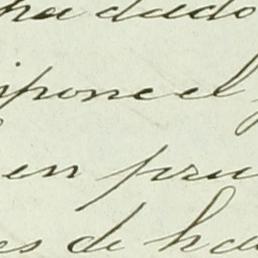 ha dado
ipone el
en pru
es de ha